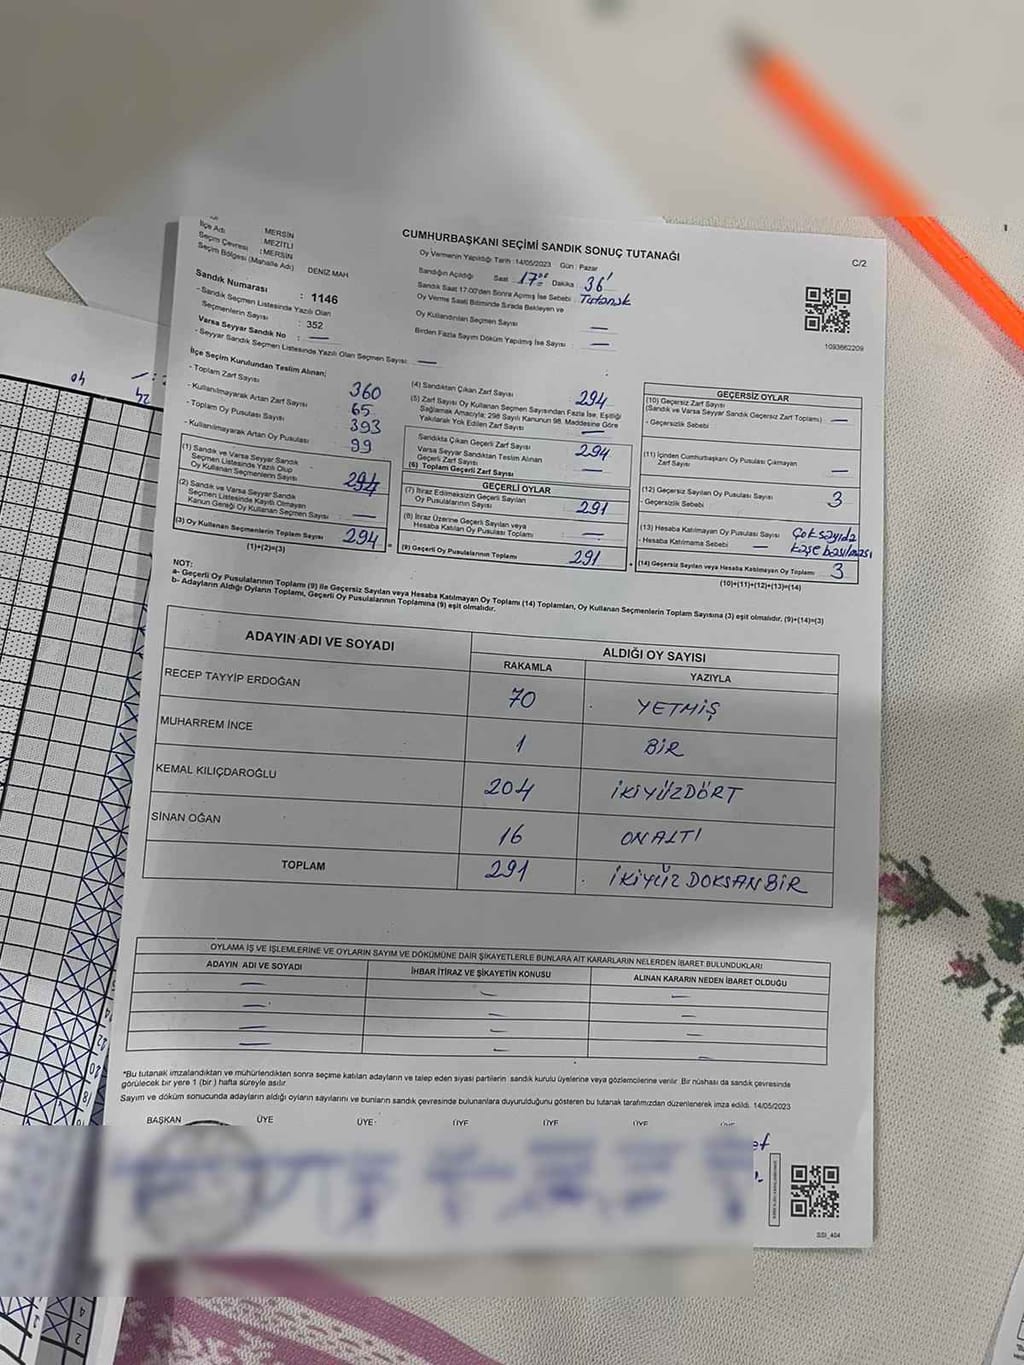 CUMHURBAŞKANI SEÇİMİ SANDIK SONUÇ TUTANAĞI
C/2
İlçe Adı : MERSİN
Seçim Çevresi : MEZİTLİ
: MERSİN
Seçim Bölgesi (Mahalle Adı) DENİZ MAH
Sandık Numarası : 1146
- Sandık Seçmen Listesinde Yazılı Olan
Seçmenlerin Sayısı : 352
Varsa Seyyar Sandık No : —
- Seyyar Sandık Seçmen Listesinde Yazılı Olan Seçmen Sayısı: —
Oy Vermenin Yapıldığı Tarih :14/05/2023 Gün : Pazar
Sandığın Açıldığı Saat 17:00 Dakika 36'
Sandık Saat 17:00'den Sonra Açılmış İse Sebebi : Tutanak
Oy Verme Saati Bitiminde Sırada Bekleyen ve
Oy Kullandırılan Seçmen Sayısı —
Birden Fazla Sayım Döküm Yapılmış İse Sayısı : —
1093662209
İlçe Seçim Kurulundan Teslim Alınan;
- Toplam Zarf Sayısı 360
- Kullanılmayarak Artan Zarf Sayısı 65
- Toplam Oy Pusulası Sayısı 393
- Kullanılmayarak Artan Oy Pusulası 99
(1) Sandık ve Varsa Seyyar Sandık
Seçmen Listesinde Yazılı Olup
Oy Kullanan Seçmenlerin Sayısı 294
(2) Sandık ve Varsa Seyyar Sandık
Seçmen Listesinde Kayıtlı Olmayan
Kanun Gereği Oy Kullanan Seçmen Sayısı —
(3) Oy Kullanan Seçmenlerin Toplam Sayısı 294
(1)+(2)=(3)
(4) Sandıktan Çıkan Zarf Sayısı 294
(5) Zarf Sayısı Oy Kullanan Seçmen Sayısından Fazla İse, Eşitliği
Sağlamak Amacıyla; 298 Sayılı Kanunun 98. Maddesine Göre
Yakılarak Yok Edilen Zarf Sayısı —
Sandıkta Çıkan Geçerli Zarf Sayısı 294
Varsa Seyyar Sandıktan Teslim Alınan
Geçerli Zarf Sayısı —
(6) Toplam Geçerli Zarf Sayısı
GEÇERLİ OYLAR
(7) İtiraz Edilmeksizin Geçerli Sayılan
Oy Pusulalarının Sayısı 291
(8) İtiraz Üzerine Geçerli Sayılan veya
Hesaba Katılan Oy Pusulası Toplamı —
(9) Geçerli Oy Pusulalarının Toplamı 291
GEÇERSİZ OYLAR
(10) Geçersiz Zarf Sayısı
(Sandık ve Varsa Seyyar Sandık Geçersiz Zarf Toplamı) —
- Geçersizlik Sebebi
(11) İçinden Cumhurbaşkanı Oy Pusulası Çıkmayan
Zarf Sayısı —
(12) Geçersiz Sayılan Oy Pusulası Sayısı 3
- Geçersizlik Sebebi
(13) Hesaba Katılmayan Oy Pusulası Sayısı Çok sayıda
- Hesaba Katılmama Sebebi — kaşe basılması
(14) Geçersiz Sayılan veya Hesaba Katılmayan Oy Toplamı 3
(10)+(11)+(12)+(13)=(14)
NOT:
a- Geçerli Oy Pusulalarının Toplamı (9) ile Geçersiz Sayılan veya Hesaba Katılmayan Oy Toplamı (14) Toplamları, Oy Kullanan Seçmenlerin Toplam Sayısına (3) eşit olmalıdır. (9)+(14)=(3)
b- Adayların Aldığı Oyların Toplamı, Geçerli Oy Pusulalarının Toplamına (9) eşit olmalıdır.
ADAYIN ADI VE SOYADI ALDIĞI OY SAYISI
RAKAMLA YAZIYLA
RECEP TAYYİP ERDOĞAN 70 YETMİŞ
MUHARREM İNCE 1 BİR
KEMAL KILIÇDAROĞLU 204 İKİYÜZDÖRT
SİNAN OĞAN 16 ONALTI
TOPLAM 291 İKİYÜZ DOKSANBİR
OYLAMA İŞ VE İŞLEMLERİNE VE OYLARIN SAYIM VE DÖKÜMÜNE DAİR ŞİKAYETLERLE BUNLARA AİT KARARLARIN NELERDEN İBARET BULUNDUKLARI
ADAYIN ADI VE SOYADI İHBAR İTİRAZ VE ŞİKAYETİN KONUSU ALINAN KARARIN NEDEN İBARET OLDUĞU
*Bu tutanak imzalandıktan ve mühürlendikten sonra seçime katılan adayların ve talep eden siyasi partilerin sandık kurulu üyelerine veya gözlemcilerine verilir. Bir nüshası da sandık çevresinde
görülecek bir yere 1 (bir) hafta süreyle asılır.
Sayım ve döküm sonucunda adayların aldığı oyların sayılarını ve bunların sandık çevresinde bulunanlara duyurulduğunu gösteren bu tutanak tarafımızdan düzenlenerek imza edildi. 14/05/2023
BAŞKAN ÜYE ÜYE: ÜYE ÜYE ÜYE
SSI_404